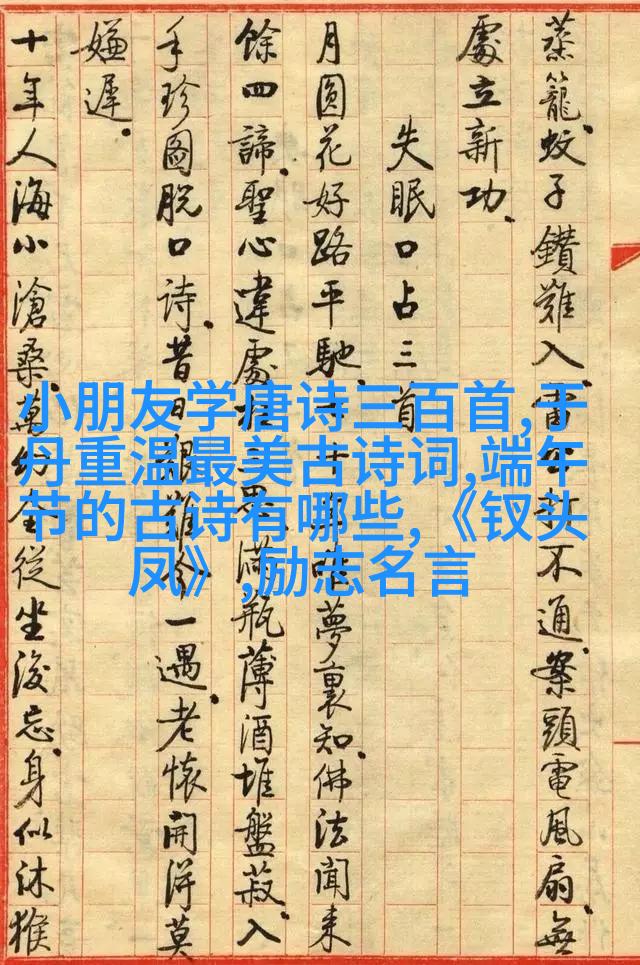 蒸籠。蚊子鑽難入。雷公打不通。案頭電風扇。無
處立新功。
失眠口占三首
月圓花好路平馳。夢裏知。佛法聞来
餘四諦。聖心違處滿瓶薄酒堆盤菽。入
手珍圖脫口詩。昔日艱難今一遇。老懷開得莫
嫌遲。
十年人海小滄桑。萬幻全從坐後忘。身似沐猴
小朋友学唐诗三百首,于
丹重温最美古诗词,端午
节的古诗有哪些,《钗头
凤》,励志名言